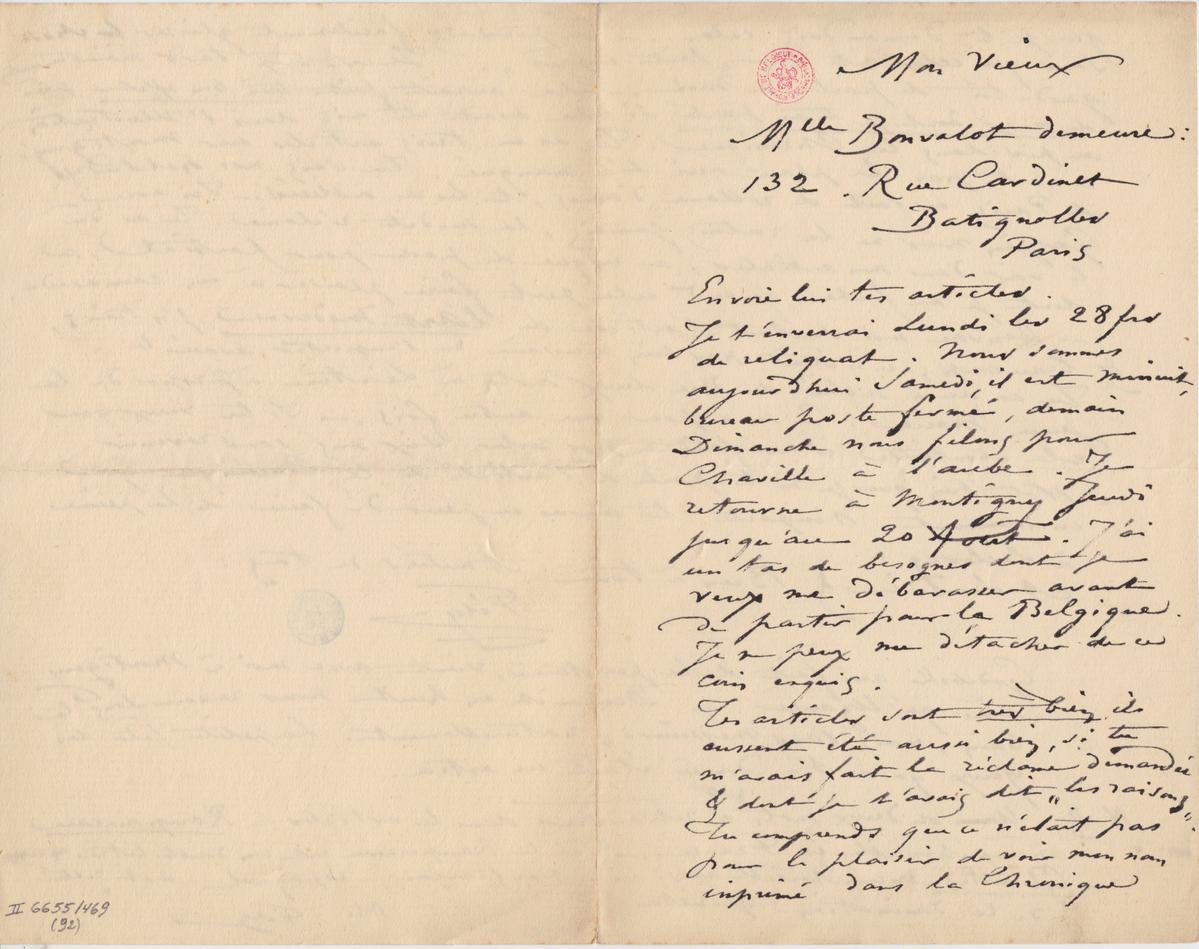 Mon Vieux
Mlle Bonvalot demeure :
132 . Rue Cardinet
Batignolles
Paris
Envoie lui tes articles.
Je t'enverrai Lundi les 28 frs
de reliquat. Nous sommes
aujourd'hui Samedi, il est minuit,
bureau poste fermé, demain
Dimanche nous filons pour
Chaville à l'aube. Je
retourne à Montigny Jeudi
jusqu'au 20 Août. J'ai
un tas de besognes dont je
veux me débarasser avant
de partir pour la Belgique.
Je ne peux me détacher de ce
coin exquis.
Tes articles sont très bien, ils
eussent été aussi bien, si tu
m'avais fait la réclame demandée
& dont je t'avais dit „les raisons".
Tu comprends que ce n'était pas
pour le plaisir de voir mon nom
imprimé dans la Chronique
II 6655/469
(92)